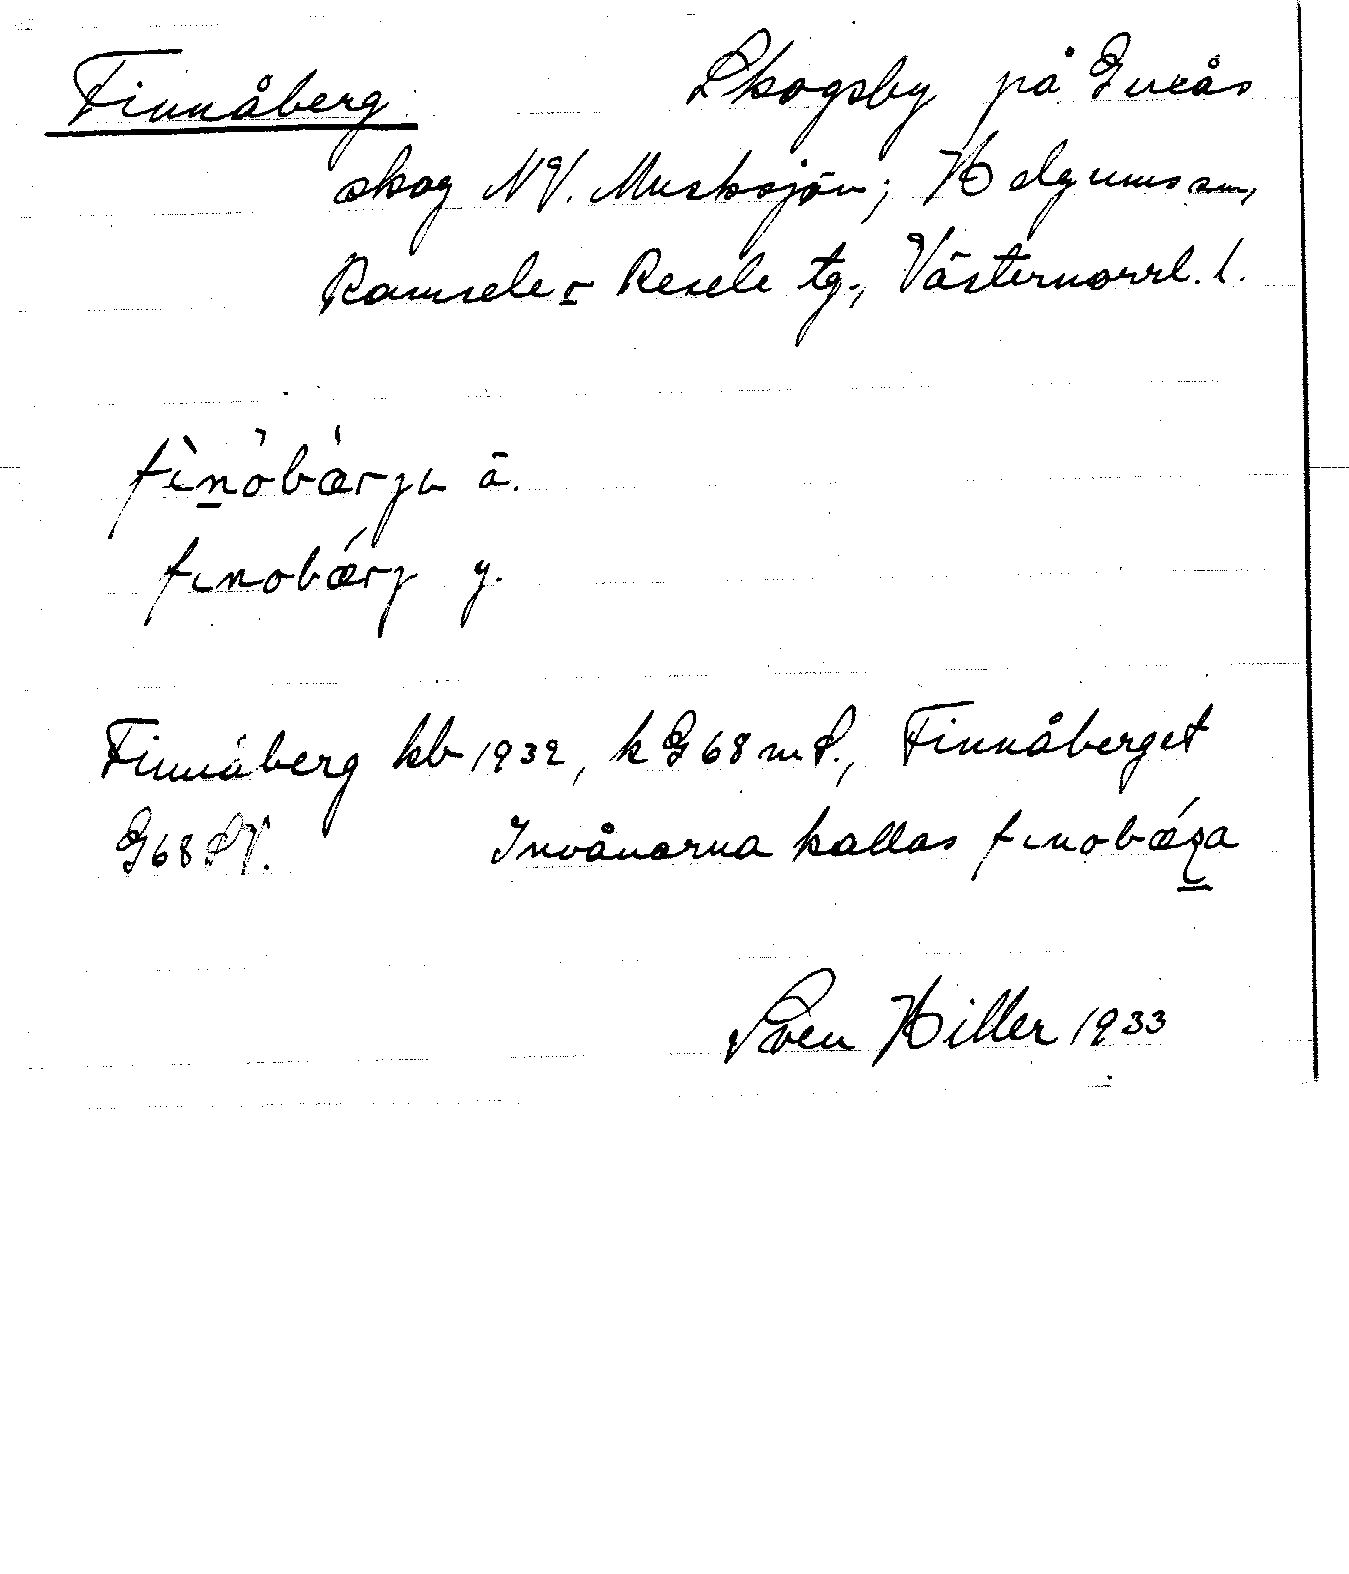 Finnåberg Skogsby på Gueås
skog NV. Musksjön; Helgums sn,
Ramsele o Resele tg., Västernorrl. l.
fìnòbàrjɩ ä.
fɩnobǽrj y.
Finnåberg kb 1932, k G68 m S., Finnåberget
G68 SV. Invånarna kallas
Sven Hiller 1933